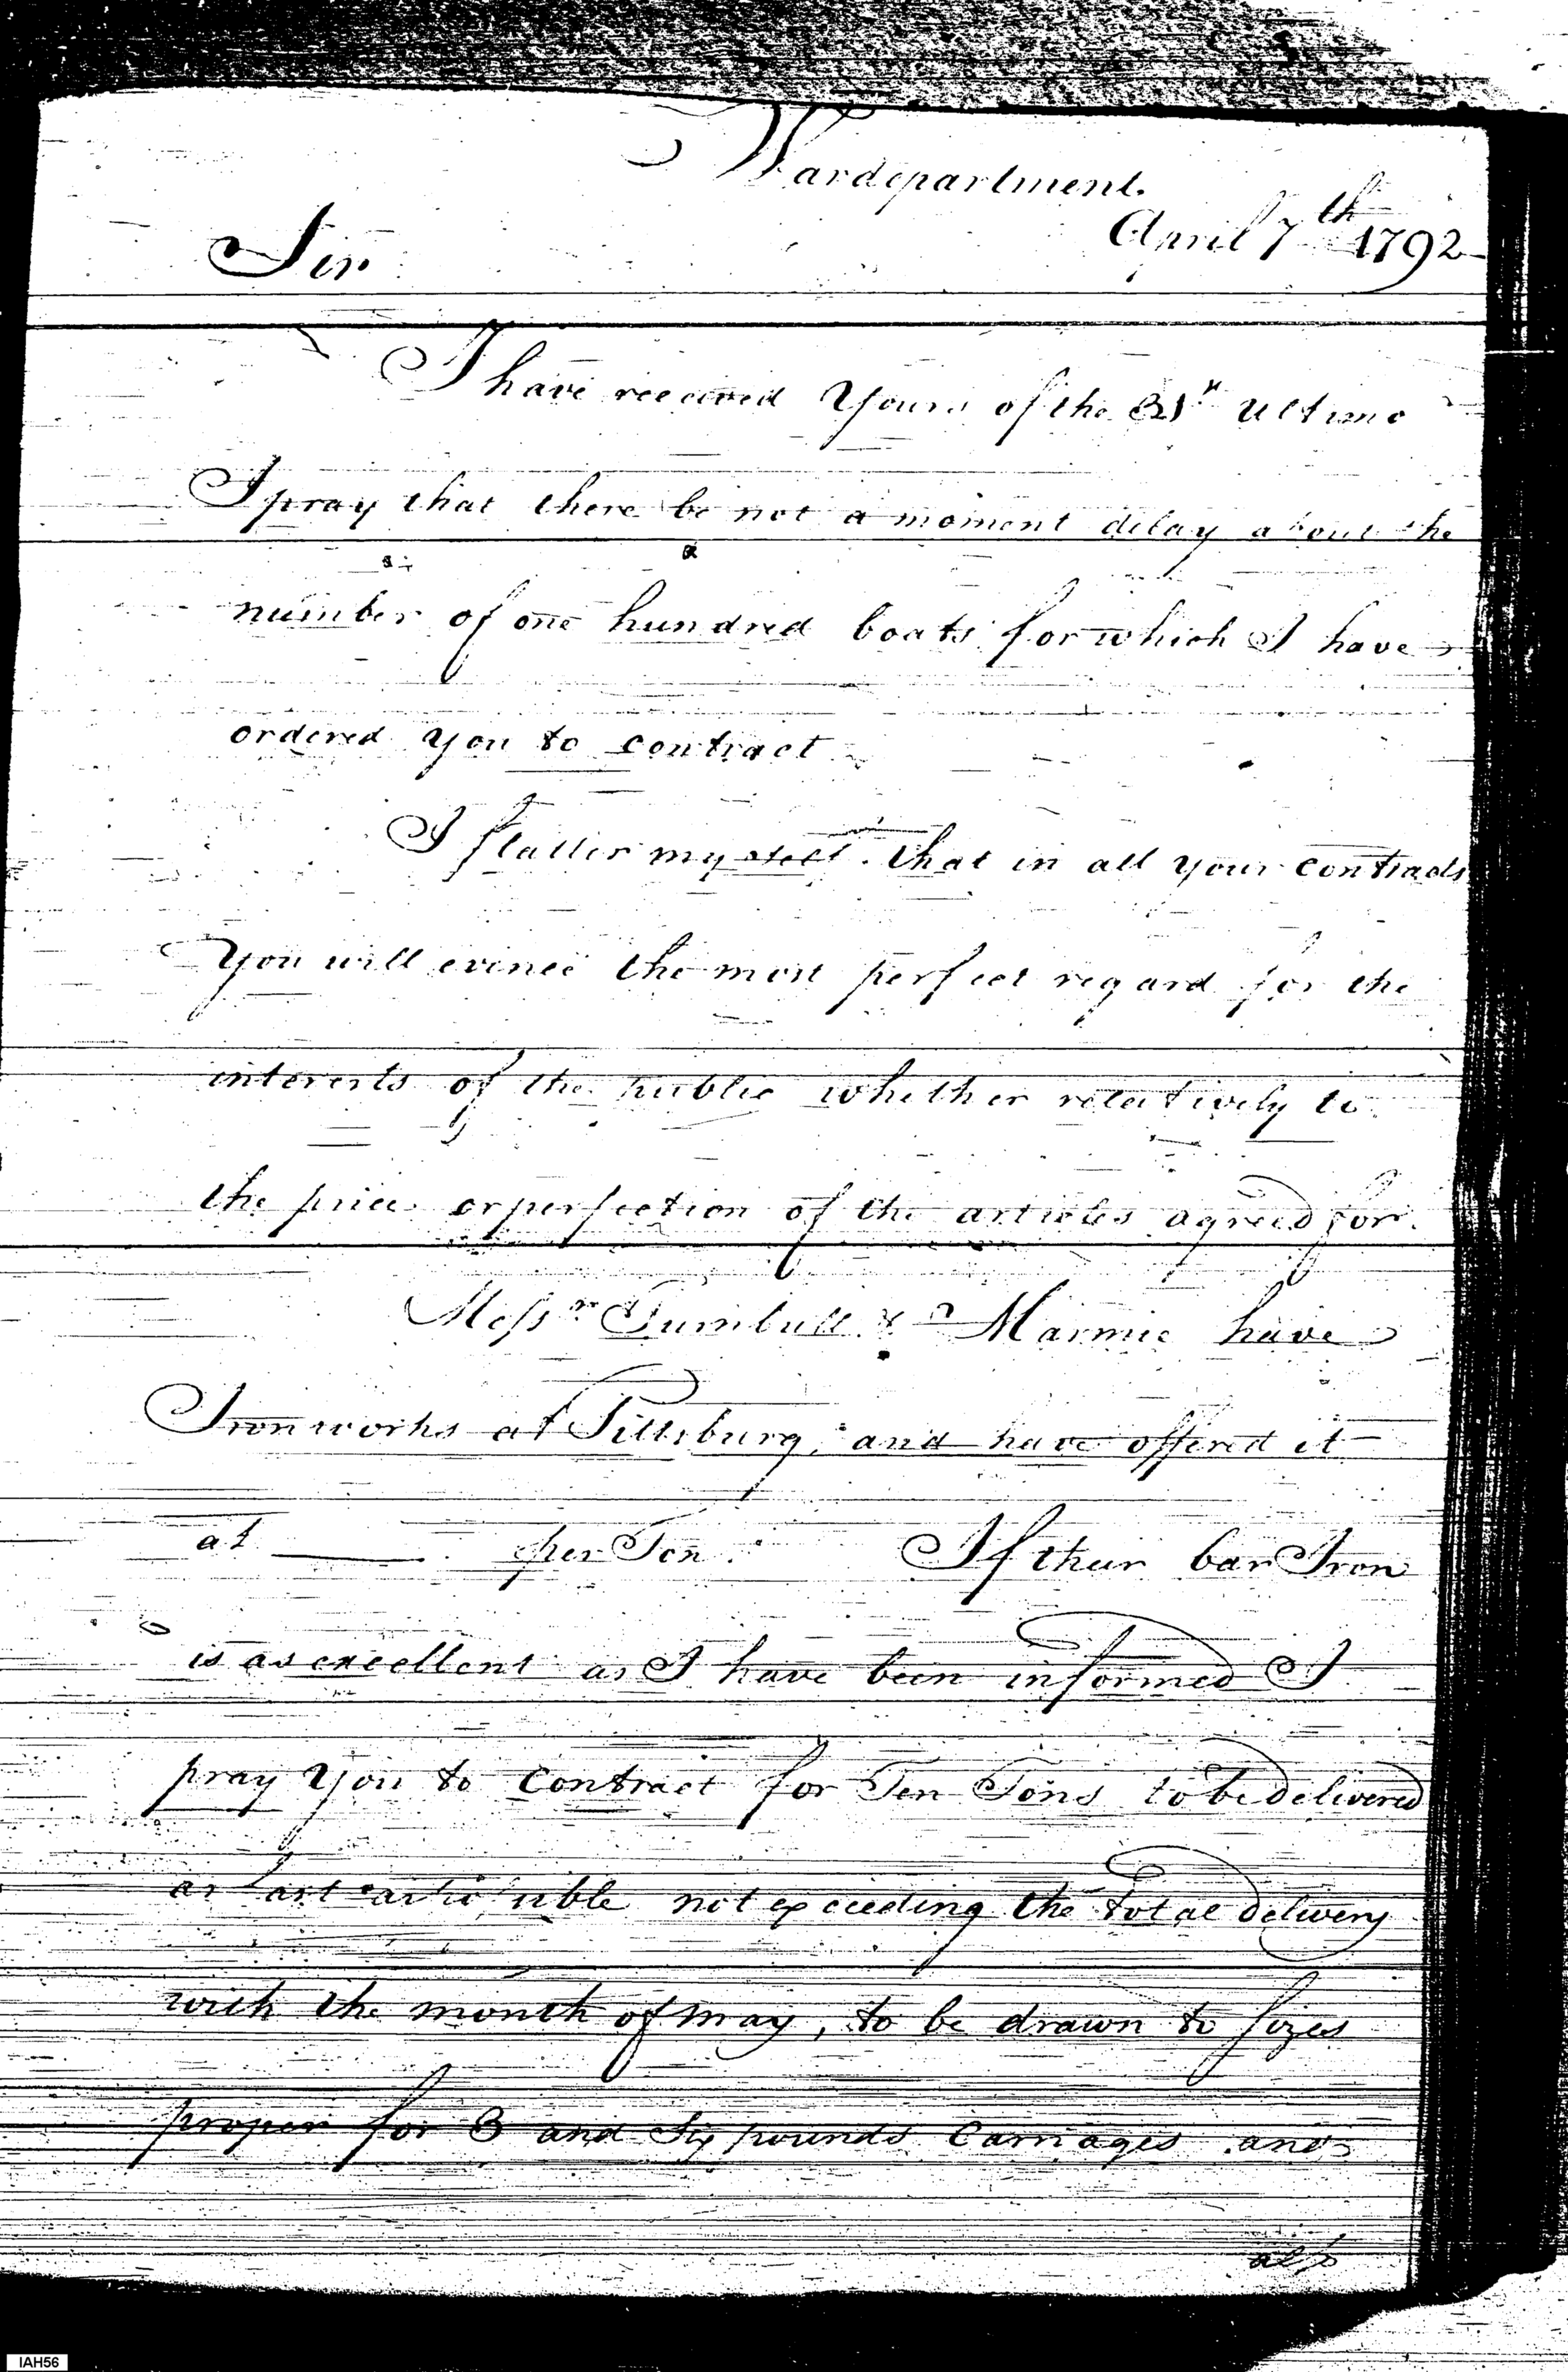 Wardepartment.
April 7th 1792
Sir
I have received Yours of the 31st Ultimo
I pray that there be not a moment delay about the
number of one hundred boats for which I have
ordered you to contract
I flatter myself that in all your contracts
You will evince the most perfect regard for the
interests of the public whether relatively to
the price or perfection of the articles agreed for.
Messrs Turnbull & Marmie have
Ironworks at Pittsburg, and have offered it
at ——— per Ton. If their bar Iron
is as excellent as I have been informed I
pray You to contract for Ten Tons to be delivered
as fast as not exceeding the total delivery
with the month of may, to be drawn to sizes
proper for 3 and Six pounds Carriages and
also
IAH56